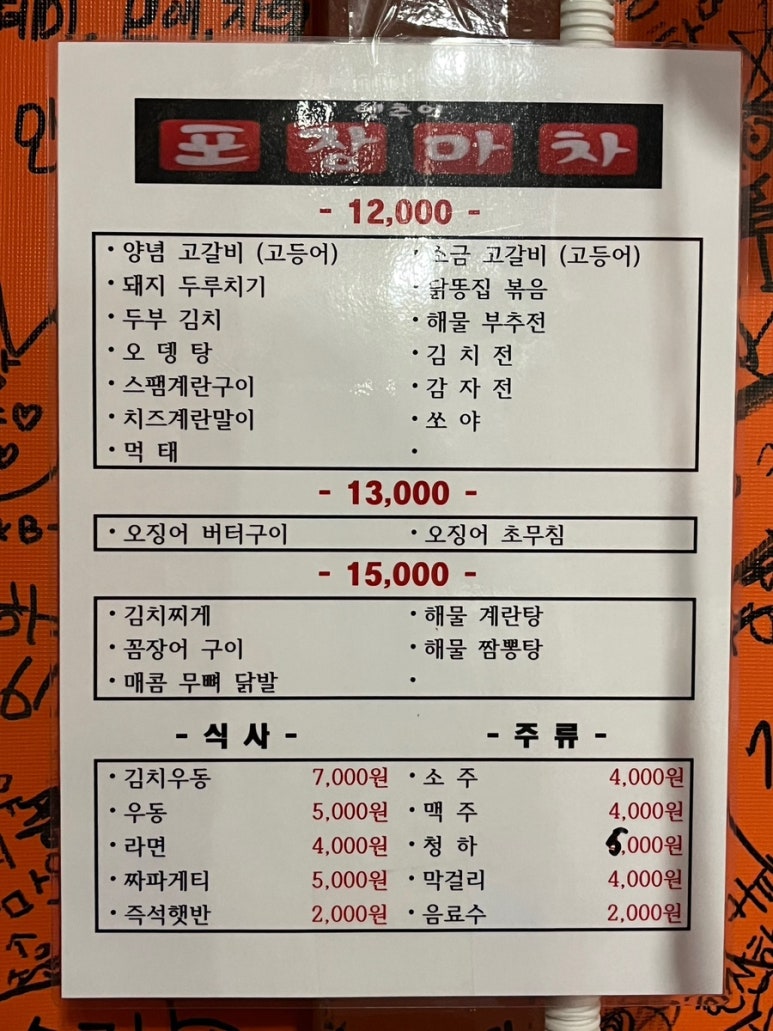 포 장 마 차
- 12,000 -
· 양념 고갈비 (고등어) · 소금 고갈비 (고등어)
· 돼지 두루치기 · 닭똥집 볶음
· 두부 김치 · 해물 부추전
· 오 뎅 탕 · 김 치 전
· 스팸계란구이 · 감 자 전
· 치즈계란말이 · 쏘 야
· 먹 태 ·
- 13,000 -
· 오징어 버터구이 · 오징어 초무침
- 15,000 -
· 김치찌게 · 해물 계란탕
· 꼼장어 구이 · 해물 짬뽕탕
· 매콤 무뼈 닭발 ·
- 식 사 - - 주 류 -
· 김치우동 7,000원 · 소 주 4,000원
· 우동 5,000원 · 맥 주 4,000원
· 라면 4,000원 · 청 하 5,000원
· 짜파게티 5,000원 · 막걸리 4,000원
· 즉석햇반 2,000원 · 음료수 2,000원